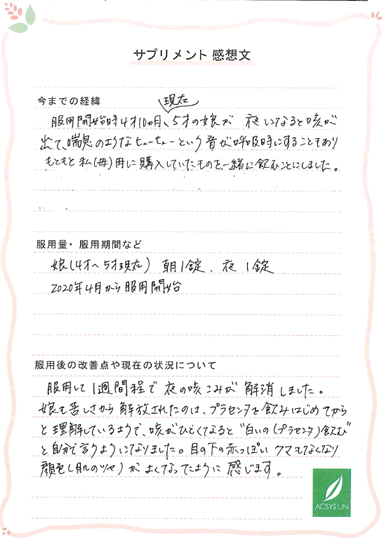 サプリメント 感想文
今までの経緯
現在
服用開始時4才10ヵ月、5才の娘が 夜になると咳が
出て、喘息のようなヒューヒューという音が呼吸時にすることもあり
もともと私(母)用に購入していたものを一緒に飲むことにしました。
服用量・服用期間など
娘(4才〜5才現在) 朝1錠、夜1錠
2020年4月から服用開始
服用後の改善点や現在の状況について
服用して1週間程で夜の咳こみが解消しました。
娘も苦しさから解放されたのは、プラセンタを飲みはじめてから
と理解しているようで、咳がひどくなると"白いの(プラセンタ)飲む"
と自分で言うようになりました。目の下の赤っぽいクマもなくなり
顔色(肌のツヤ)がよくなったように感じます。
ACSYS UN